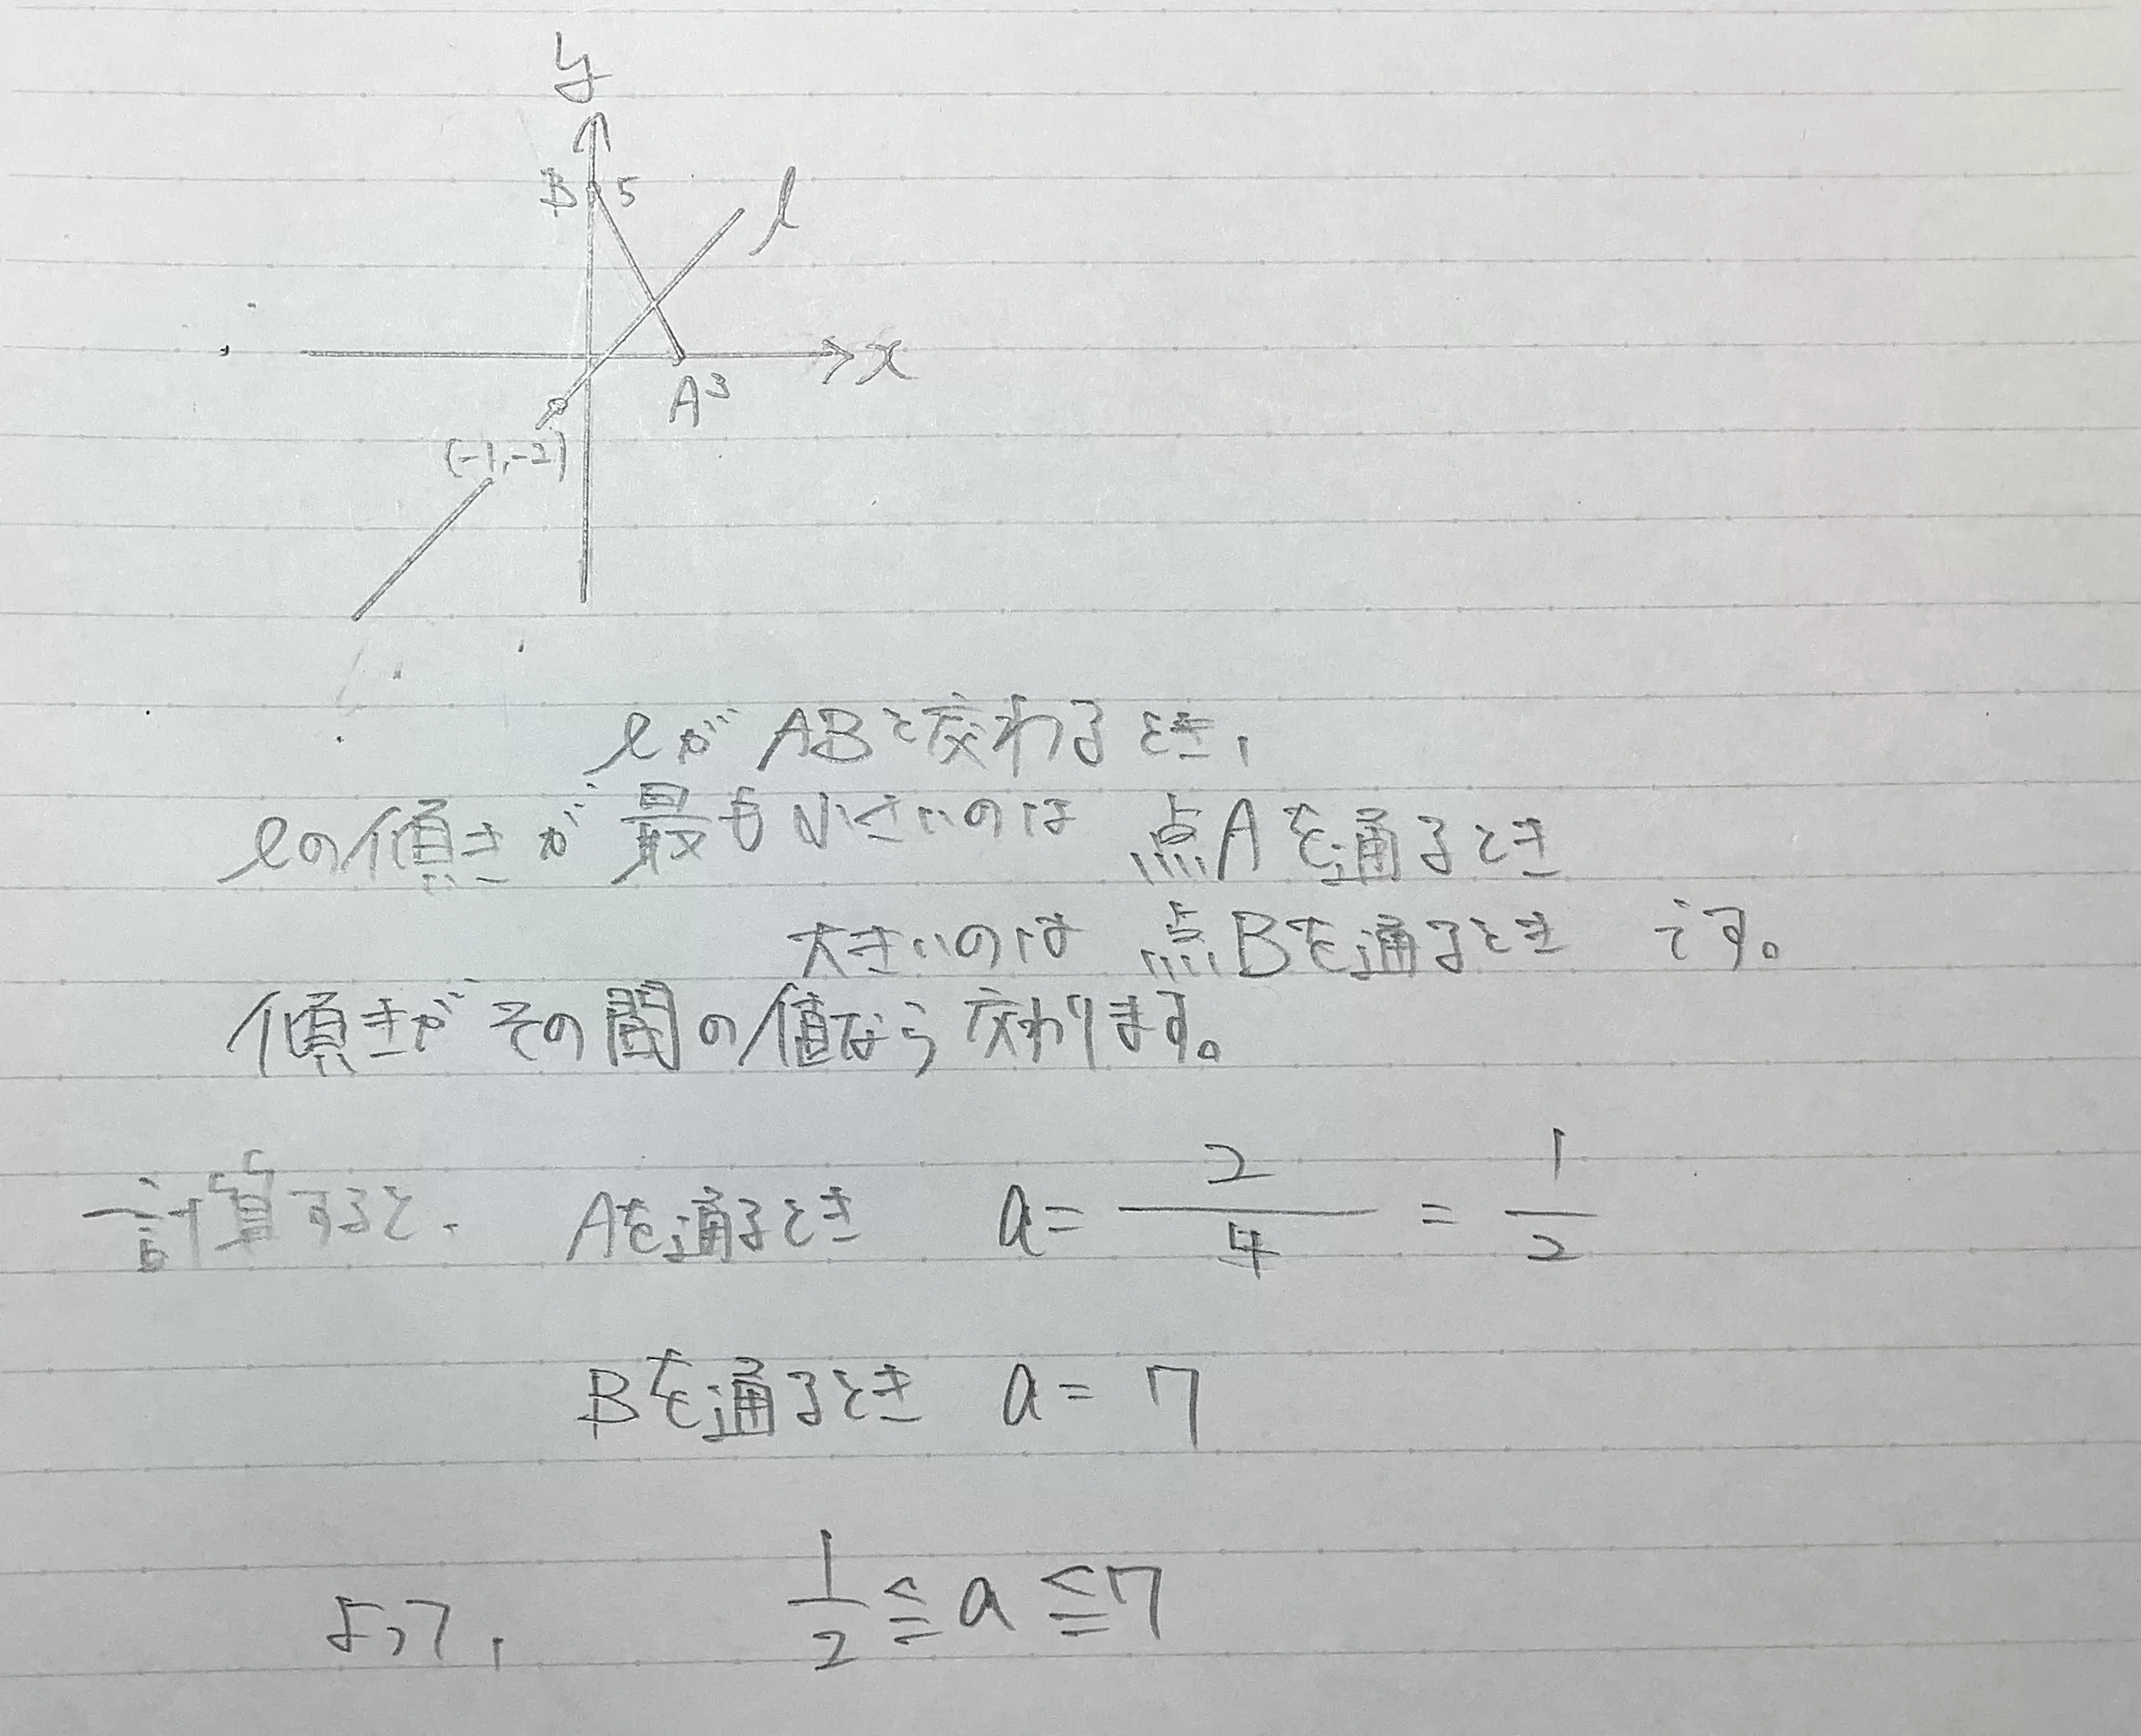 y
B 5 l
x
A 3
(-1,-2)
lがABと交わるとき,
lの傾きが最も小さいのは 点Aを通るとき
大きいのは 点Bを通るとき です。
傾きがその間の値なら交わります。
計算すると、 Aを通るとき a = 2/4 = 1/2
Bを通るとき a = 7
よって, 1/2 ≦ a ≦ 7